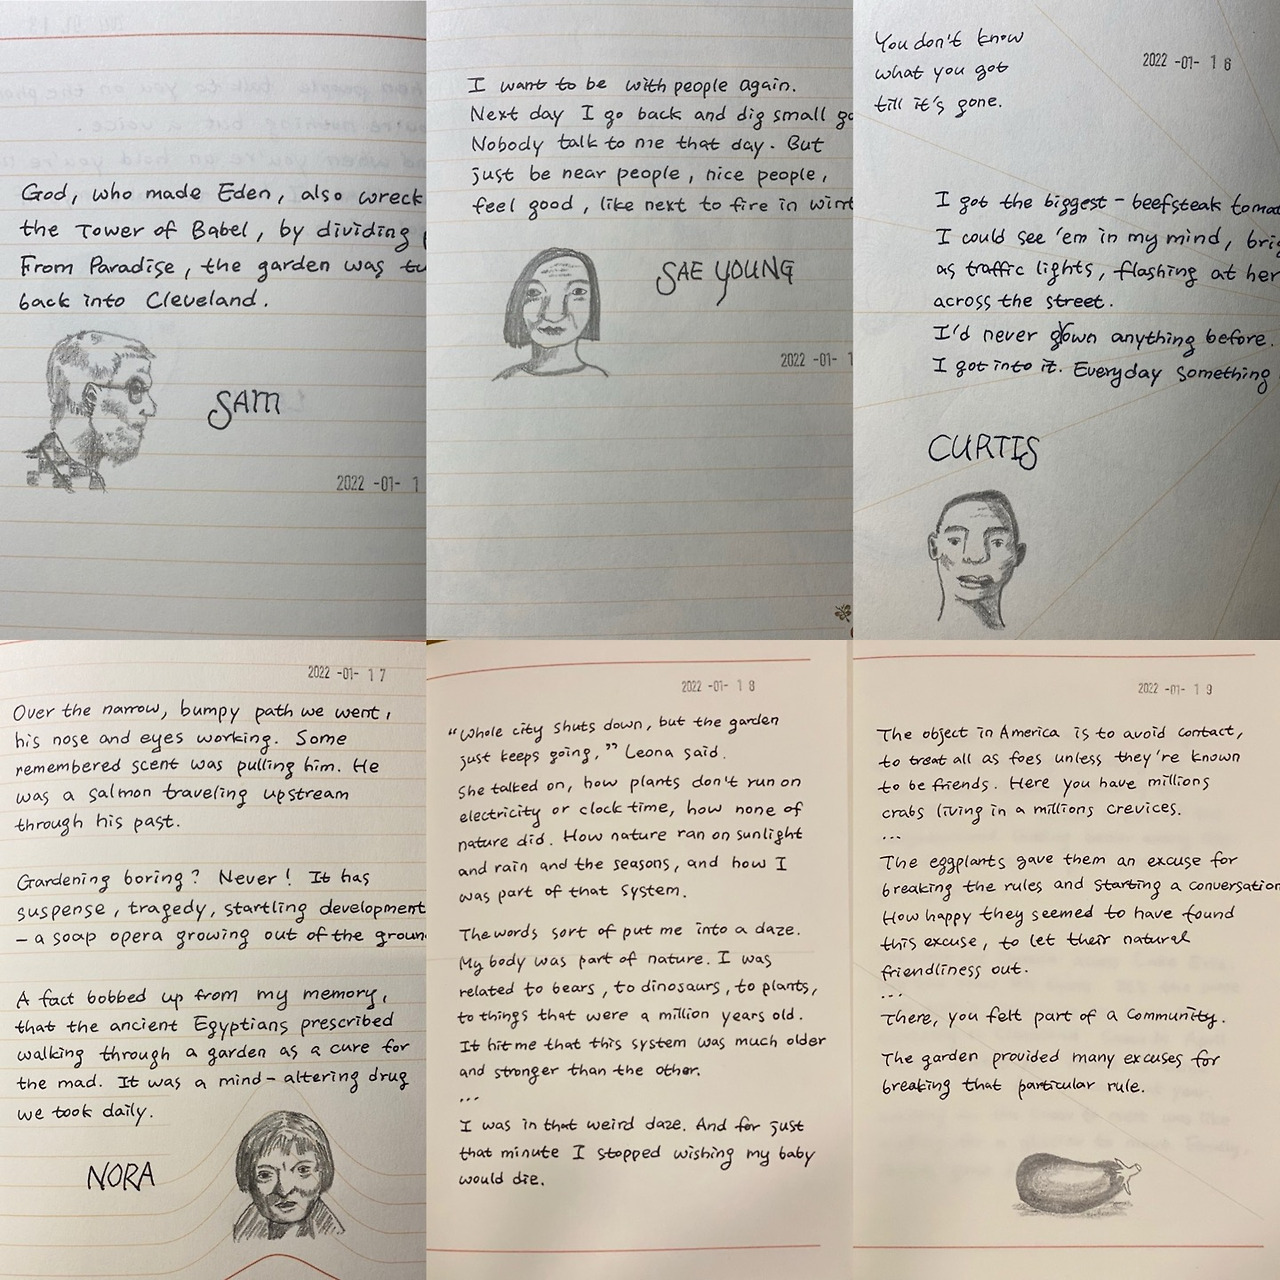 God, who made Eden, also wreck
the Tower of Babel, by dividing
From Paradise, the garden was
back into Cleveland.
SAM
2022 -01- 1
I want to be with people again.
Next day I go back and dig small
Nobody talk to me that day. But
just be near people, nice people,
feel good, like next to fire in wint
SAE YOUNG
2022 -01- 1
You don't know
what you got
till it's gone.
2022 -01- 16
I got the biggest - beefsteak tomat
I could see 'em in my mind, brig
as traffic lights, flashing at her
across the street.
I'd never grown anything before.
I got into it. Everyday something
CURTIS
2022 -01- 17
Over the narrow, bumpy path we went,
his nose and eyes working. Some
remembered scent was pulling him. He
was a salmon traveling upstream
through his past.
Gardening boring? Never! It has
suspense, tragedy, startling development
- a soap opera growing out of the groun
A fact bobbed up from my memory,
that the ancient Egyptians prescribed
walking through a garden as a cure for
the mad. It was a mind-altering drug
we took daily.
NORA
2022 -01- 18
"Whole city shuts down, but the garden
just keeps going," Leona said.
She talked on, how plants don't run on
electricity or clock time, how none of
nature did. How nature ran on sunlight
and rain and the seasons, and how I
was part of that system.
The words sort of put me into a daze.
My body was part of nature. I was
related to bears, to dinosaurs, to plants,
to things that were a million years old.
It hit me that this system was much older
and stronger than the other.
...
I was in that weird daze. And for just
that minute I stopped wishing my baby
would die.
2022 -01- 19
The object in America is to avoid contact,
to treat all as foes unless they're known
to be friends. Here you have millions
crabs living in a millions crevices.
...
The eggplants gave them an excuse for
breaking the rules and starting a conversation
How happy they seemed to have found
this excuse, to let their natural
friendliness out.
...
There, you felt part of a community.
The garden provided many excuses for
breaking that particular rule.